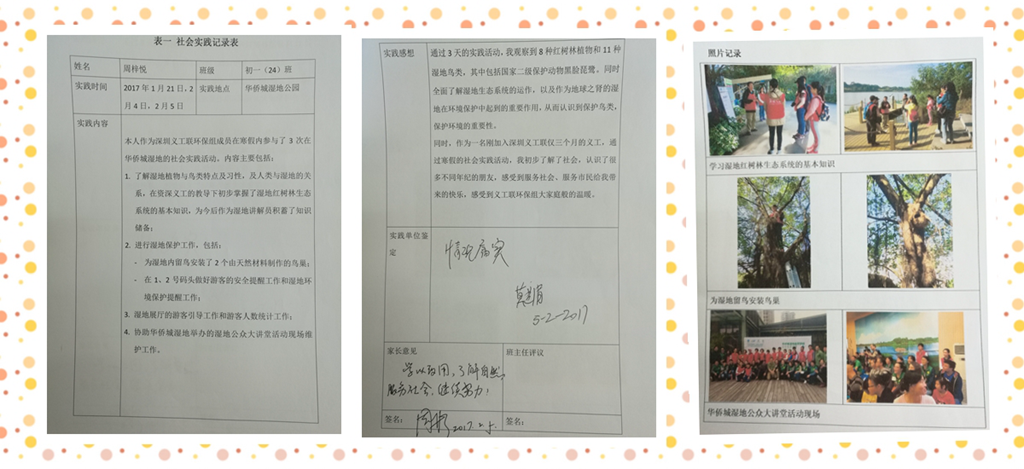 表一 社会实践记录表
姓名
周梓悦
班级
初一（24）班
实践时间
2017 年 1 月 21 日，2
月 4 日，2 月 5 日
实践地点
华侨城湿地公园
实践内容
本人作为深圳义工联环保组成员在寒假内参与了 3 次在
华侨城湿地的社会实践活动。内容主要包括：
1. 了解湿地植物与鸟类特点及习性，及人类与湿地的关
系，在资深义工的教导下初步掌握了湿地红树林生态
系统的基本知识，为今后作为湿地讲解员积蓄了知识
储备；
2. 进行湿地保护工作，包括：
- 为湿地内留鸟安装了 2 个由天然材料制作的鸟巢；
- 在 1、2 号码头做好游客的安全提醒工作和湿地环
境保护提醒工作；
3. 湿地展厅的游客引导工作和游客人数统计工作；
4. 协助华侨城湿地举办的湿地公众大讲堂活动现场维
护工作。
实践感想
通过 3 天的实践活动，我观察到 8 种红树林植物和 11 种
湿地鸟类，其中包括国家二级保护动物黑脸琵鹭。同时
全面了解湿地生态系统的运作，以及作为地球之肾的湿
地在环境保护中起到的重要作用，从而认识到保护鸟类，
保护环境的重要性。
同时，作为一名刚加入深圳义工联仅三个月的义工，通
过寒假的社会实践活动，我初步了解了社会，认识了很
多不同年纪的朋友，感受到服务社会、服务市民给我带
来的快乐，感受到义工联环保组大家庭般的温暖。
实践单位签
定
情况属实
5-2-2017
家长意见
学以致用，了解自然，
服务社会，继续努力！
签名：
2017.2.5.
班主任评议
签名：
照片记录
学习湿地红树林生态系统的基本知识
为湿地留鸟安装鸟巢
华侨城湿地公众大讲堂活动现场